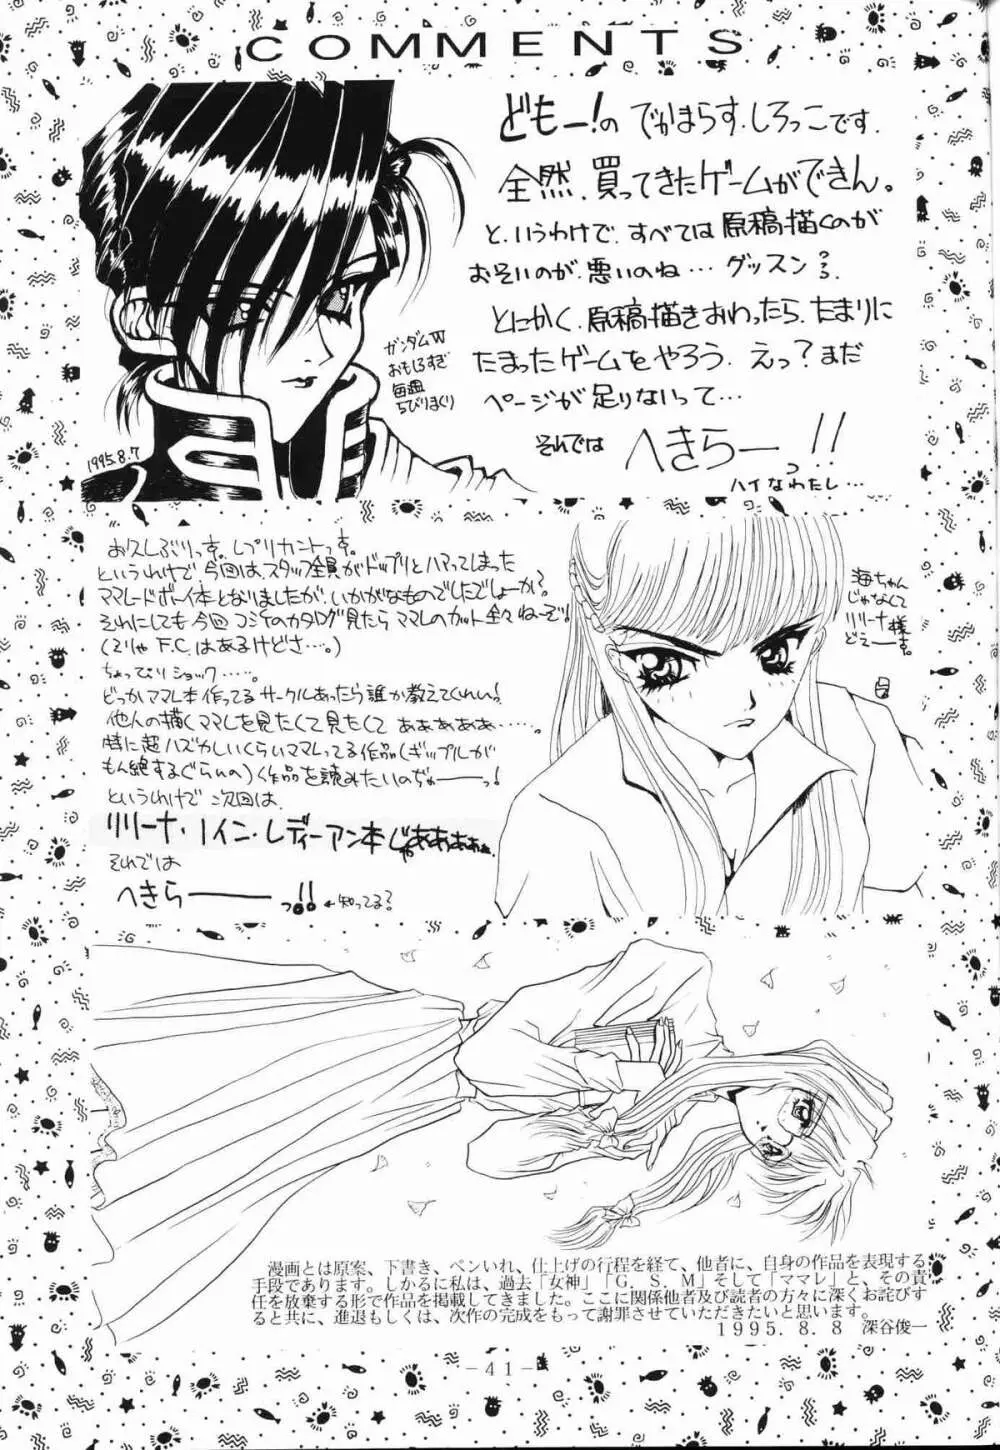 COMMENTS
どもー!の でかまらす.しろっこです.
全然.買ってきたゲームができん。
と.いうわけで.すべては原稿描くのが
おそいのが.悪いのね…グッスン??
とにかく.原稿描きおわったら.たまりに
たまったゲームをやろう.えっ?まだ
ページが足りないって…
それでは へきらーっ!!
ハイなわたし…
ガンダムW
おもしろすぎ
毎週
ちびりまくり
1995.8.7
お久しぶりっす。レプリカントっす。
というわけで今回は、スタッフ全員がドップリとハマってしまった
ママレードボーイ本となりましたが、いかがなものでしたでしょーか?
それにしても今回コミケのカタログ見たらママレのカット全々ねーぞ!
(そりゃF.C.はあるけどさ…。)
ちょっぴりショック……。
どっかママレ本作ってるサークルあったら誰か教えてくれい!
他人の描くママレを見たくて見たくて ああああああ……
特に超ハズかしいくらいママレってる作品(ギップルが
もん絶するぐらいの)作品を読みたいのぢゃーーっ!
というわけで 次回は、
リリーナ・ノイン・レディーアン本じゃああああぁ
それでは
へきらーーっ!! ←知ってる?
海ちゃん
じゃなくて
リリーナ様
どえーす。
漫画とは原案、下書き、ペンいれ、仕上げの行程を経て、他者に、自身の作品を表現する
手段であります。しかるに私は、過去「女神」「G.S.M」そして「ママレ」と、その責
任を放棄する形で作品を掲載してきました。ここに関係他者及び読者の方々に深くお詫びす
ると共に、進退もしくは、次作の完成をもって謝罪させていただきたいと思います。
1995.8.8 深谷俊一
-41-